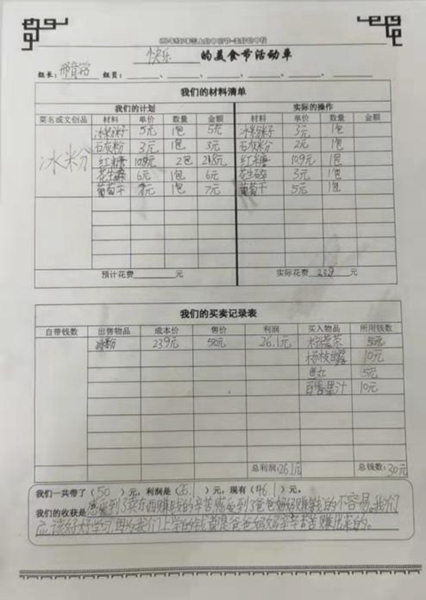 快乐 的美食节活动单
组长： 组员：
我们的材料清单
我们的计划 实际的操作
菜名或文创品 材料 单价 数量 金额 材料 单价 数量 金额
冰粉 冰粉籽 5元 1包 5元 冰粉籽 3元 1包
石灰粉 3元 1包 3元 石灰粉 2元 1包
红糖 10.9元 2包 21.8元 红糖 10.9元 1包
花生碎 6元 1包 6元 花生碎 3元 1包
葡萄干 7元 1包 7元 葡萄干 5元 1包
预计花费 元 实际花费 23.9 元
我们的买卖记录表
自带钱数 出售物品 成本价 售价 利润 买入物品 所用钱数
冰粉 23.9元 50元 26.1元 5元
杨枝甘露 10元
5元
百香果汁 10元
总利润26.1元 总钱数：30元
我们一共带了（50）元，利润是（26.1）元，现有（46.1）元。
我们的收获是 感受到了爸爸妈妈赚钱的不容易，我们
应该好好学习，因为我们上学的钱都是爸爸妈妈辛辛苦苦赚出来的。